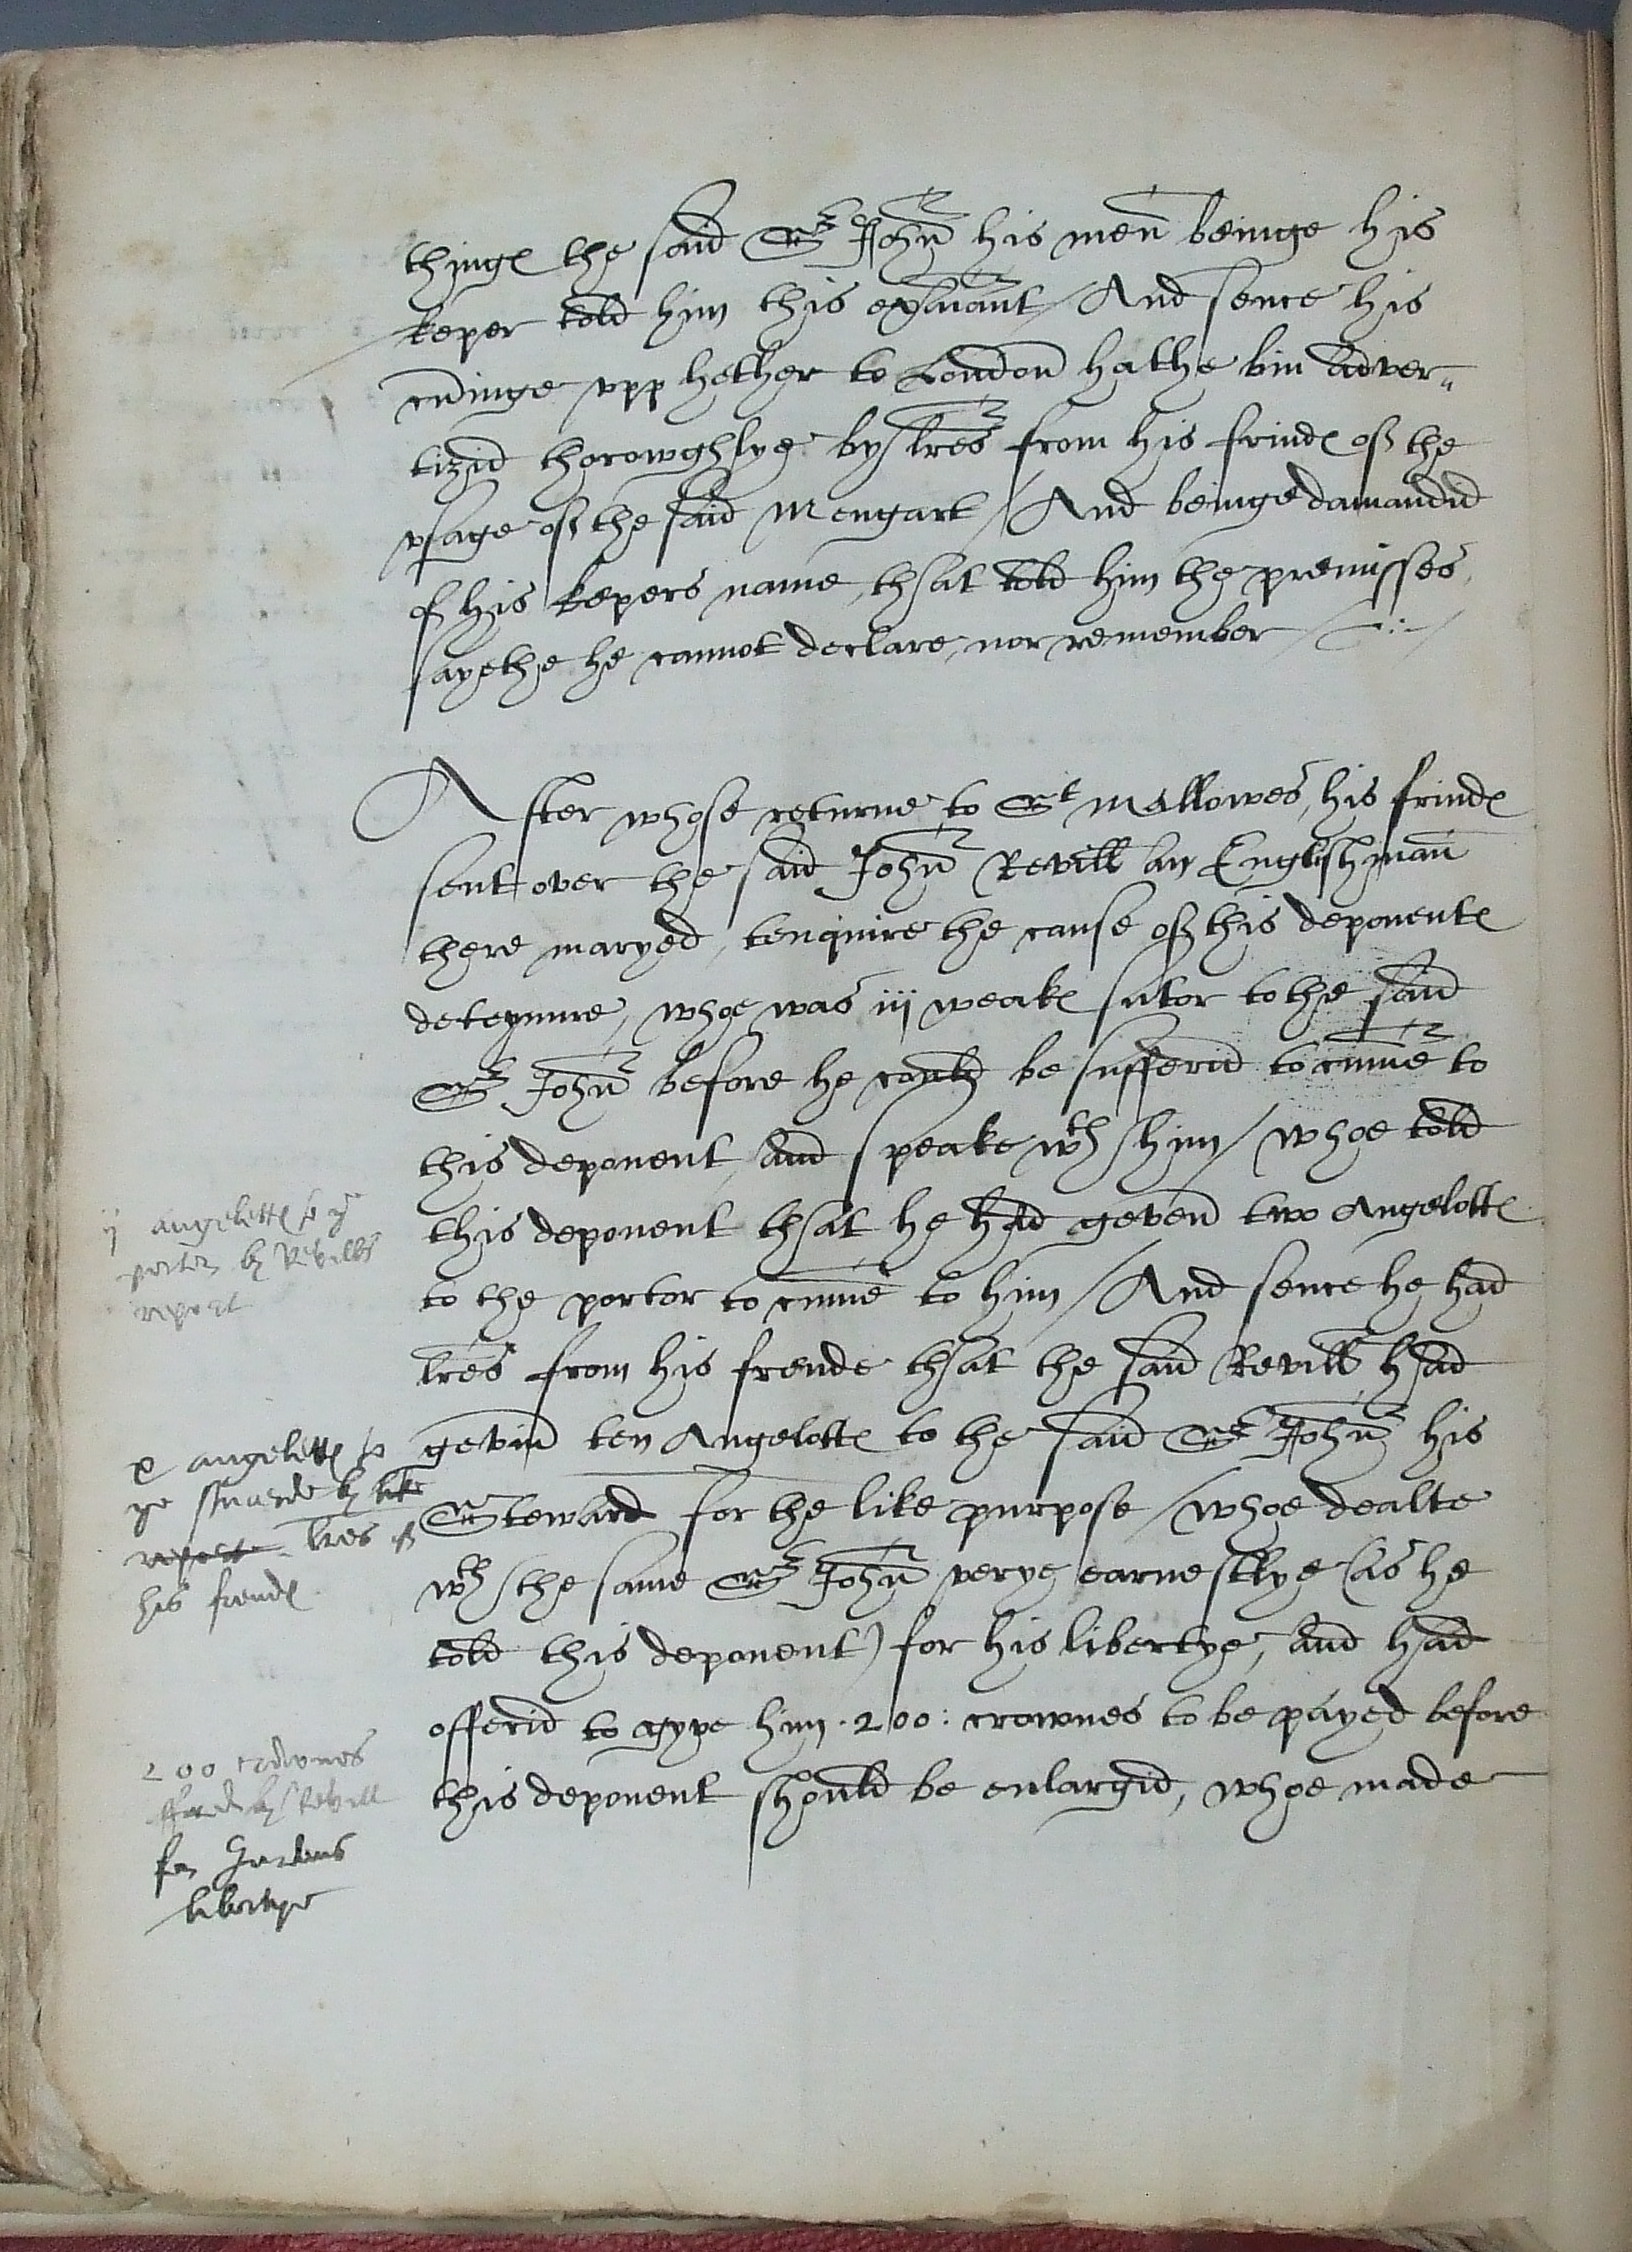 thinges the said Sr John his men beinge his
keper told him this examinant / And sence his
cminge vpp hether to London hathe bin adver„
tizid thorowghlye by lres from his frindes of the
vsage of the said Mengart / And beinge damandid
of his kepers name, that told him the premisses,
sayethe he cannot declare, nor remember /
After whose returne to St Mallowes, his frindes
sent over the said John Revill an Englishman
there maryed, tenquire the cause of this deponentes
deteynure, whoe was iij weakes sutor to the said
Sr John before he could be sufferid to cume to
this deponent, and speake wth him / whoe told
this deponent that he had geven two Angelottes
ij angelettes to ye
porter by Revills
report
to the portor to cume to him / And sence he had
lres from his frende that the said Revill had
gevin ten Angelottes to the said Sr John his
x angelettes to
ye stuarde by like
report lres of
his frendes
Steward for the like purpose / whoe dealte
wth the same Sr John verye earnestlye (as he
told this deponent) for his libertye, and had
offerid to gyve him .200: crownes to be payed before
200 crownes
offred by Revill
for Jurdens
libertye
this deponent should be enlargid, whoe made